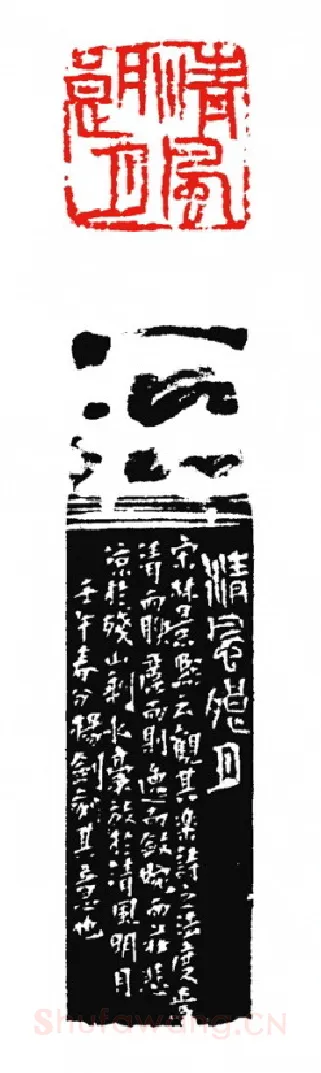 清風
明月
清風明月
宋林景熙云觀其樂詩之法度嚴
清而腴麗而則逸而斂婉而莊悲
涼於殘山剩水豪放於清風明月
壬午春分楊劍刻其意也
Shufawang.CN